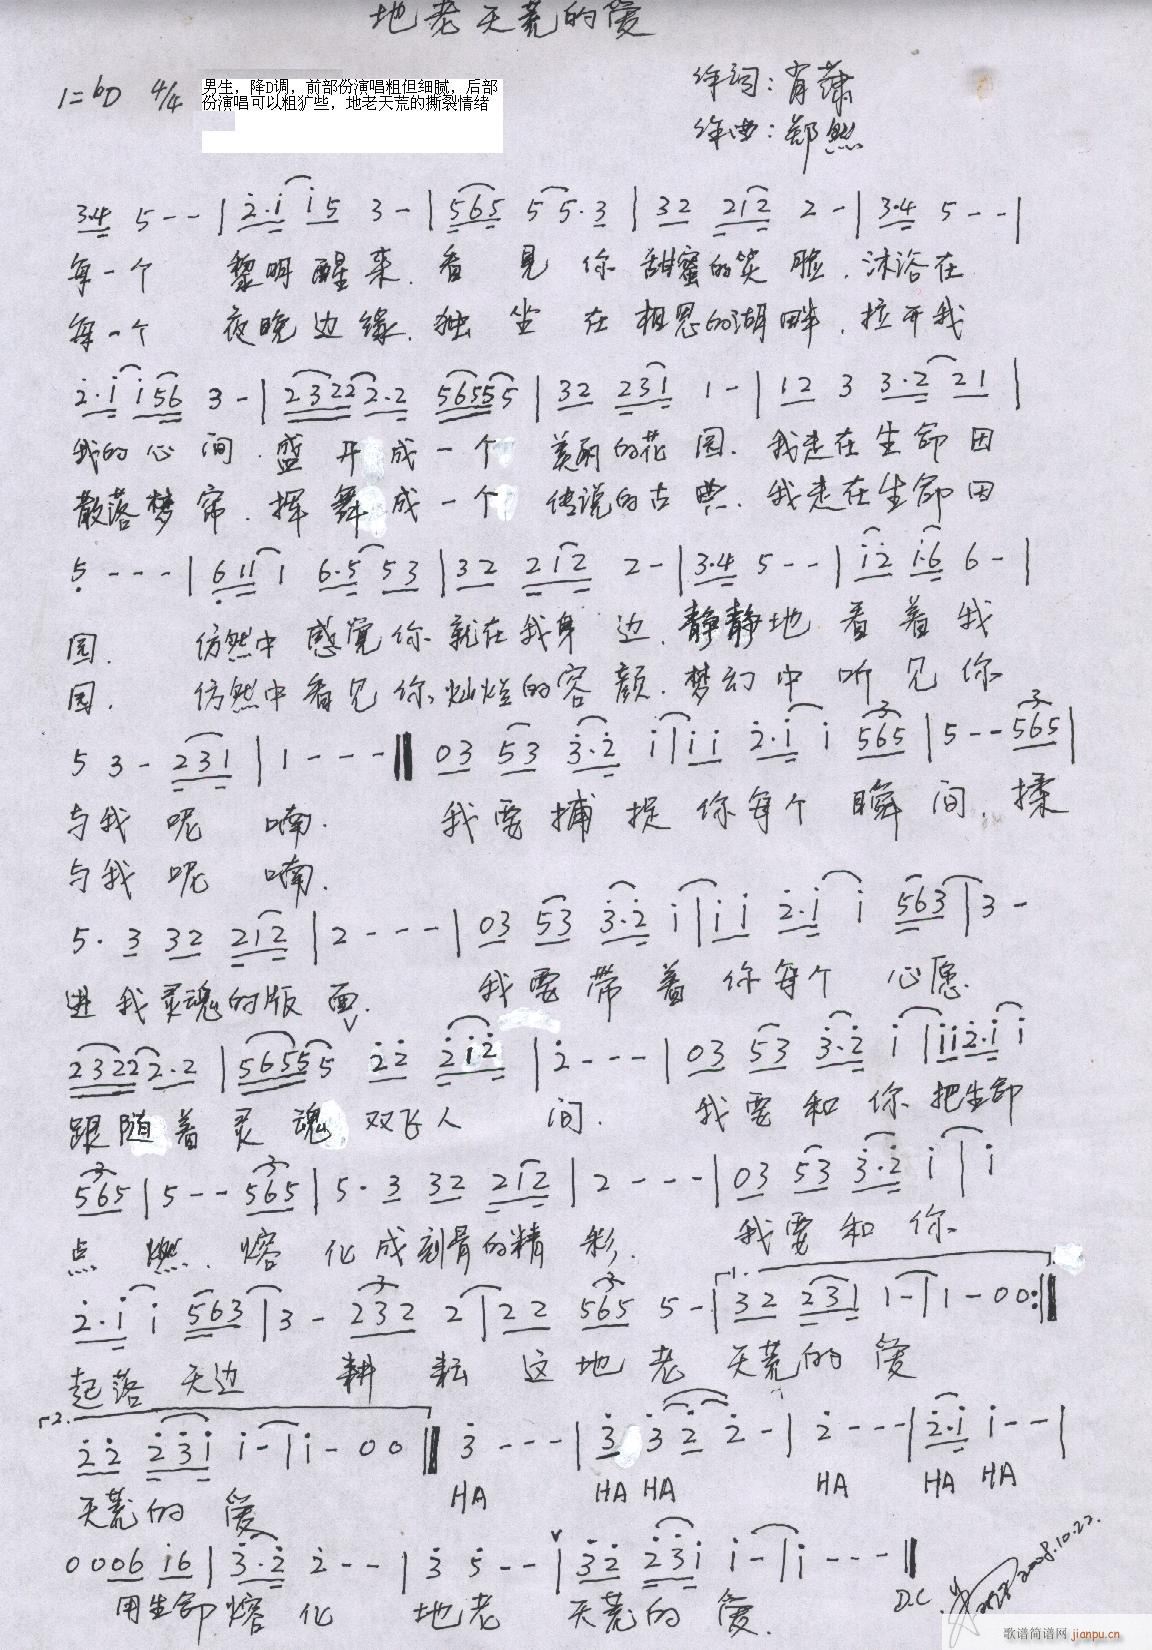 地老天荒的爱
1=bD 4/4
男生，降D调，前部份演唱粗但细腻，后部
份演唱可以粗犷些，地老天荒的撕裂情绪
作词：肖潇
作曲：郑然
3·4 5 - - | 2·i i5 3 - | 565 55·3 | 32 212 2 - | 3·4 5 - - |
每一个 黎明醒来.看见你甜蜜的笑脸.沐浴在
每一个 夜晚边缘.独坐在相思的湖畔.拉开我
2·i i56 3 - | 23222·2 565555 | 32 231 1 - | 12 3 3·2 21 |
我的心间.盛开成一个 美丽的花园.我走在生命因
散落梦帘.挥舞成一个 传说的古典.我走在生命因
5 - - - | 611 1 6·5 53 | 32 212 2 - | 3·4 5 - - | i2 i·6 6 - |
园. 仿然中感觉你就在我身边.静静地看着我
园. 仿然中看见你灿烂的容颜.梦幻中听见你
5 3 - 231 | 1 - - - || 03 53 3·2 i | ii 2·i i 565 | 5 - - 565 |
与我呢喃. 我要捕捉你每个瞬间.揉
与我呢喃.
5·3 32 212 | 2 - - - | 03 53 3·2 i | ii 2·i i 563 | 3 -
进我灵魂的版面. 我要带着你每个心愿.
23222·2 | 565555 22 2i2 | 2 - - - | 03 53 3·2 i | ii2·i i
跟随着灵魂双飞人间. 我要和你把生命
565 | 5 - - 565 | 5·3 32 212 | 2 - - - | 03 53 3·2 i | i
点燃.熔化成刻骨的精彩. 我要和你
2·i i 563 | 3 - 232 2 | 22 565 5 - | 1. 32 231 1 - | 1 - 00 :||
起落天边 耕耘这地老天荒的爱
2. 22 23i i - | i - 00 || 3 - - - | 3 32 2 - | 2 - - - | 2·i i - - |
天荒的爱 HA HA HA HA HA HA
0006 i6 | 3·2 2 - - | 3 5 - - | 32 23i i - | i - - - ||
用生命熔化 地老天荒的爱.
D.C.
2008.10.22.
歌谱简谱网
jianpu.cn